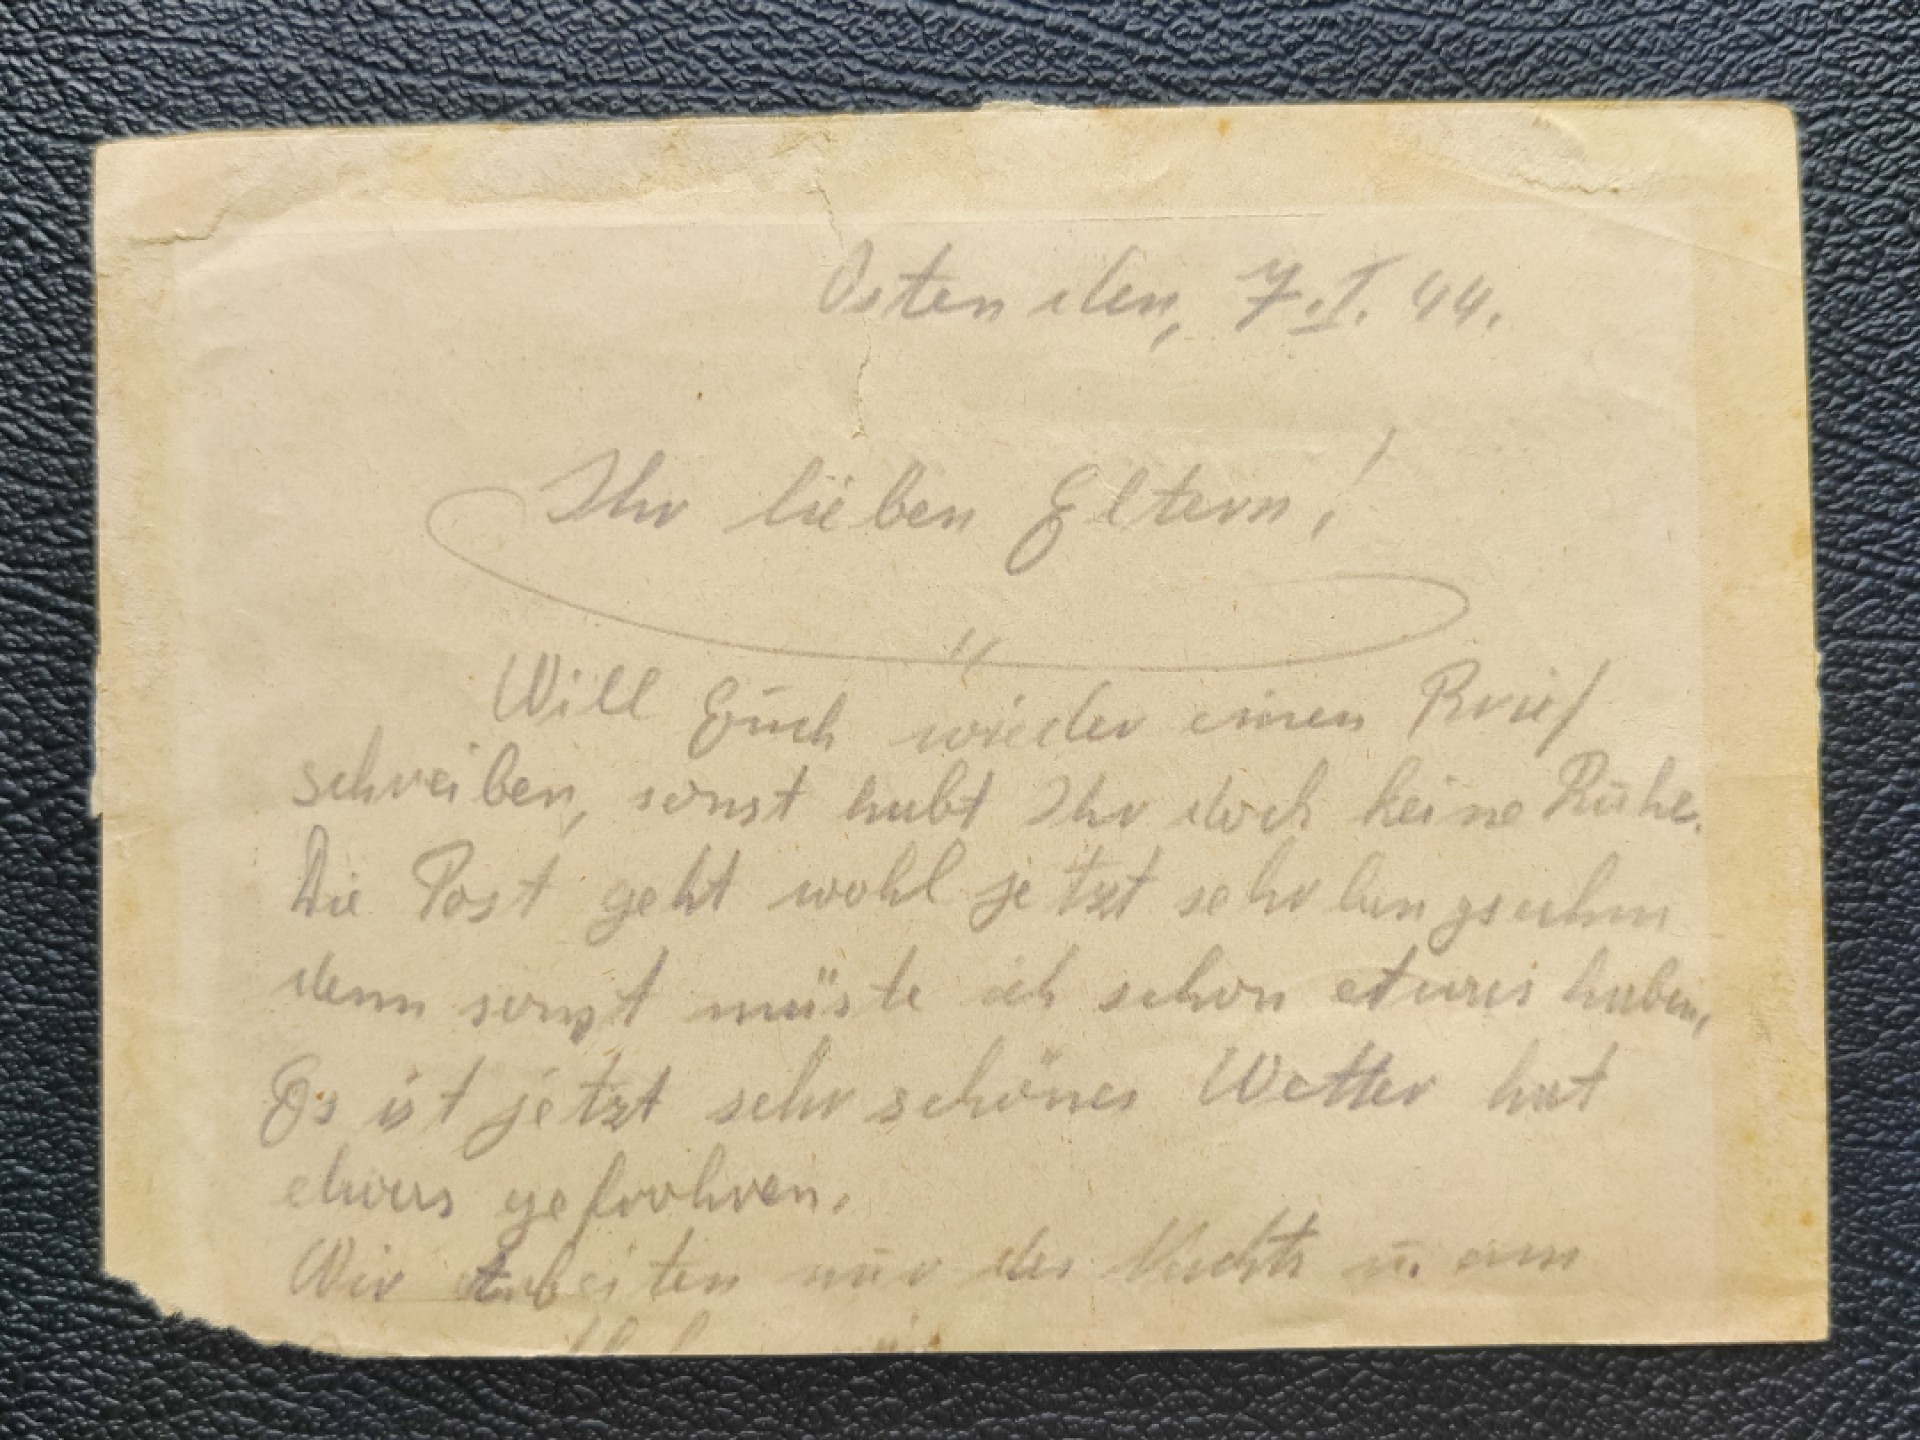 Osten den, 7.I.44.
Ihr lieben Eltern!
Will Euch wieder einen Brief
schreiben, sonst habt Ihr doch keine Ruhe.
Die Post geht wohl jetzt sehr langsahm
denn sonst müste ich schon etwas haben,
Es ist jetzt sehr schönes Wetter hat
etwas gefrohren.
Wir arbeiten nur des Nachts u. am